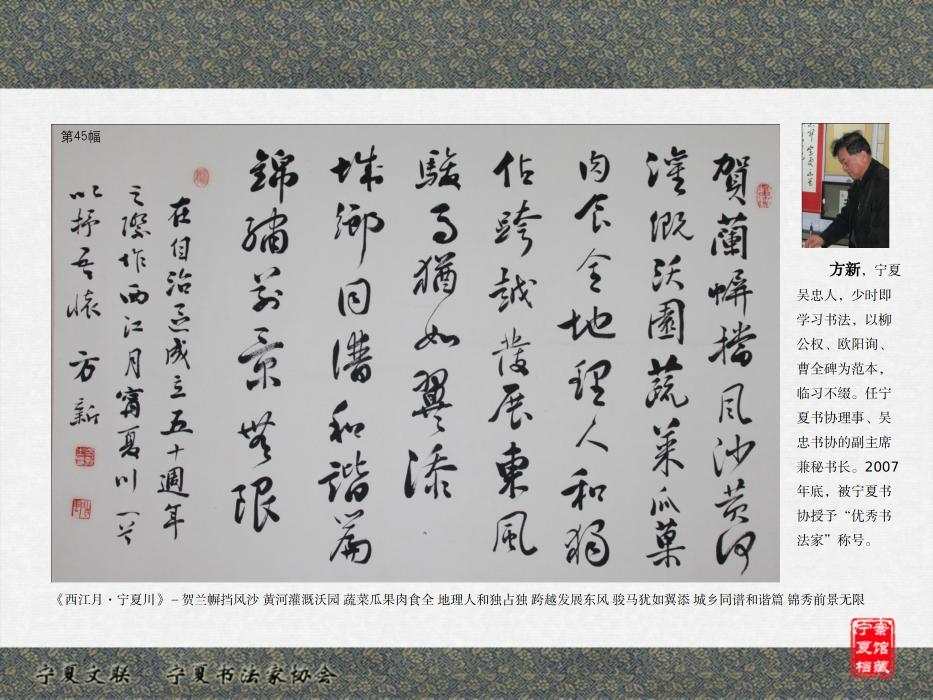 第45幅
賀蘭幈擋風沙黄河
灌溉沃園蔬菜瓜菓
肉食全地理人和獨
佔跨越發展東風
駿馬猶如翼添
城鄉同譜和諧篇
錦繡前景無限
在自治區成立五十週年
之際作西江月寧夏川一首
以抒吾懷 方新
方新，宁夏
吴忠人，少时即
学习书法，以柳
公权、欧阳询、
曹全碑为范本，
临习不缀。任宁
夏书协理事、吴
忠书协的副主席
兼秘书长。2007
年底，被宁夏书
协授予“优秀书
法家”称号。
《西江月·宁夏川》－贺兰幈挡风沙 黄河灌溉沃园 蔬菜瓜果肉食全 地理人和独占独 跨越发展东风 骏马犹如翼添 城乡同谱和谐篇 锦秀前景无限
宁夏文联 宁夏书法家协会
宁夏档案馆藏